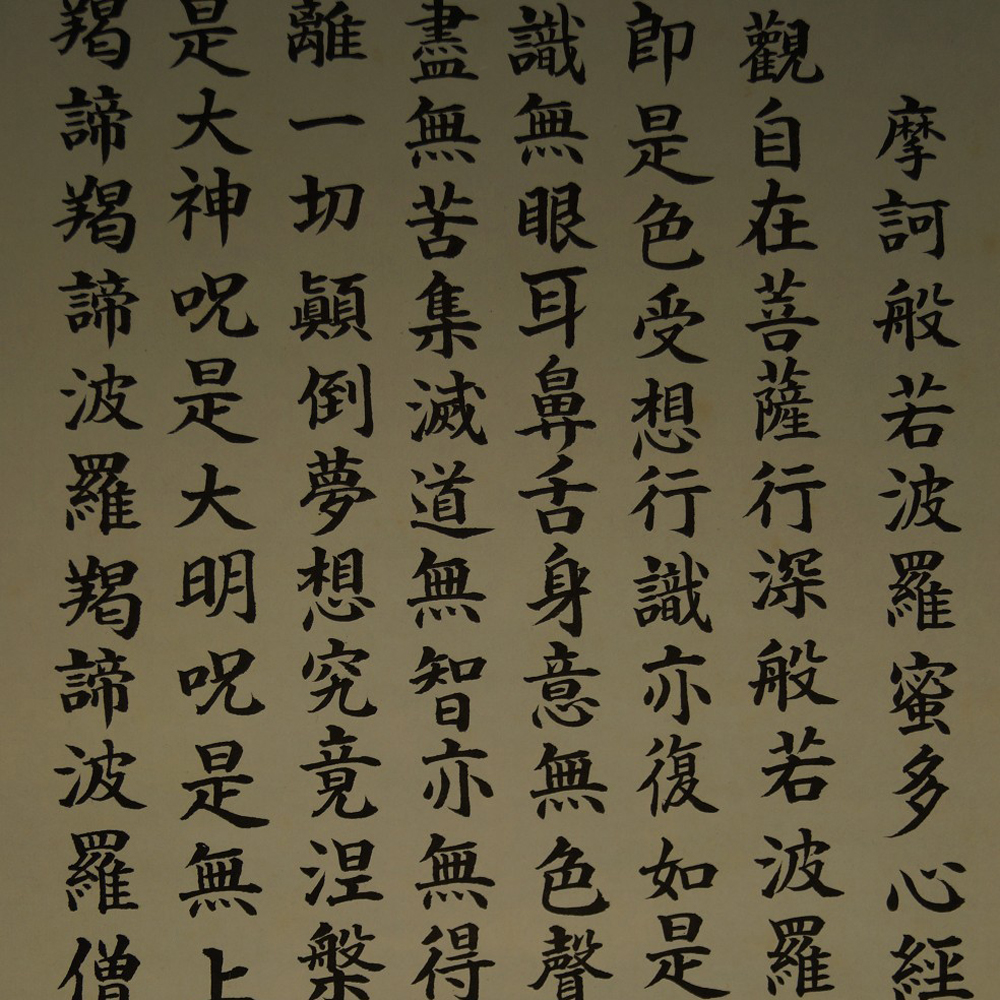 摩訶般若波羅蜜多心經
觀自在菩薩行深般若波羅
即是色受想行識亦復如是
識無眼耳鼻舌身意無色聲
盡無苦集滅道無智亦無得
離一切顛倒夢想究竟涅槃
是大神呪是大明呪是無上
羯諦羯諦波羅羯諦波羅僧